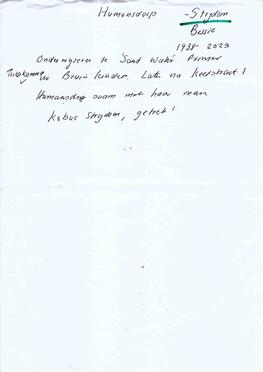 Humansdorp -Strydom
Bessie
1938-2023
Onderwyseres te 'Sand Water' Primer
Tsitsikamma vir Bruin kinders. Later na Kerkstraat 1
Humansdorp saam met haar man
Kobus Strydom, getrek!